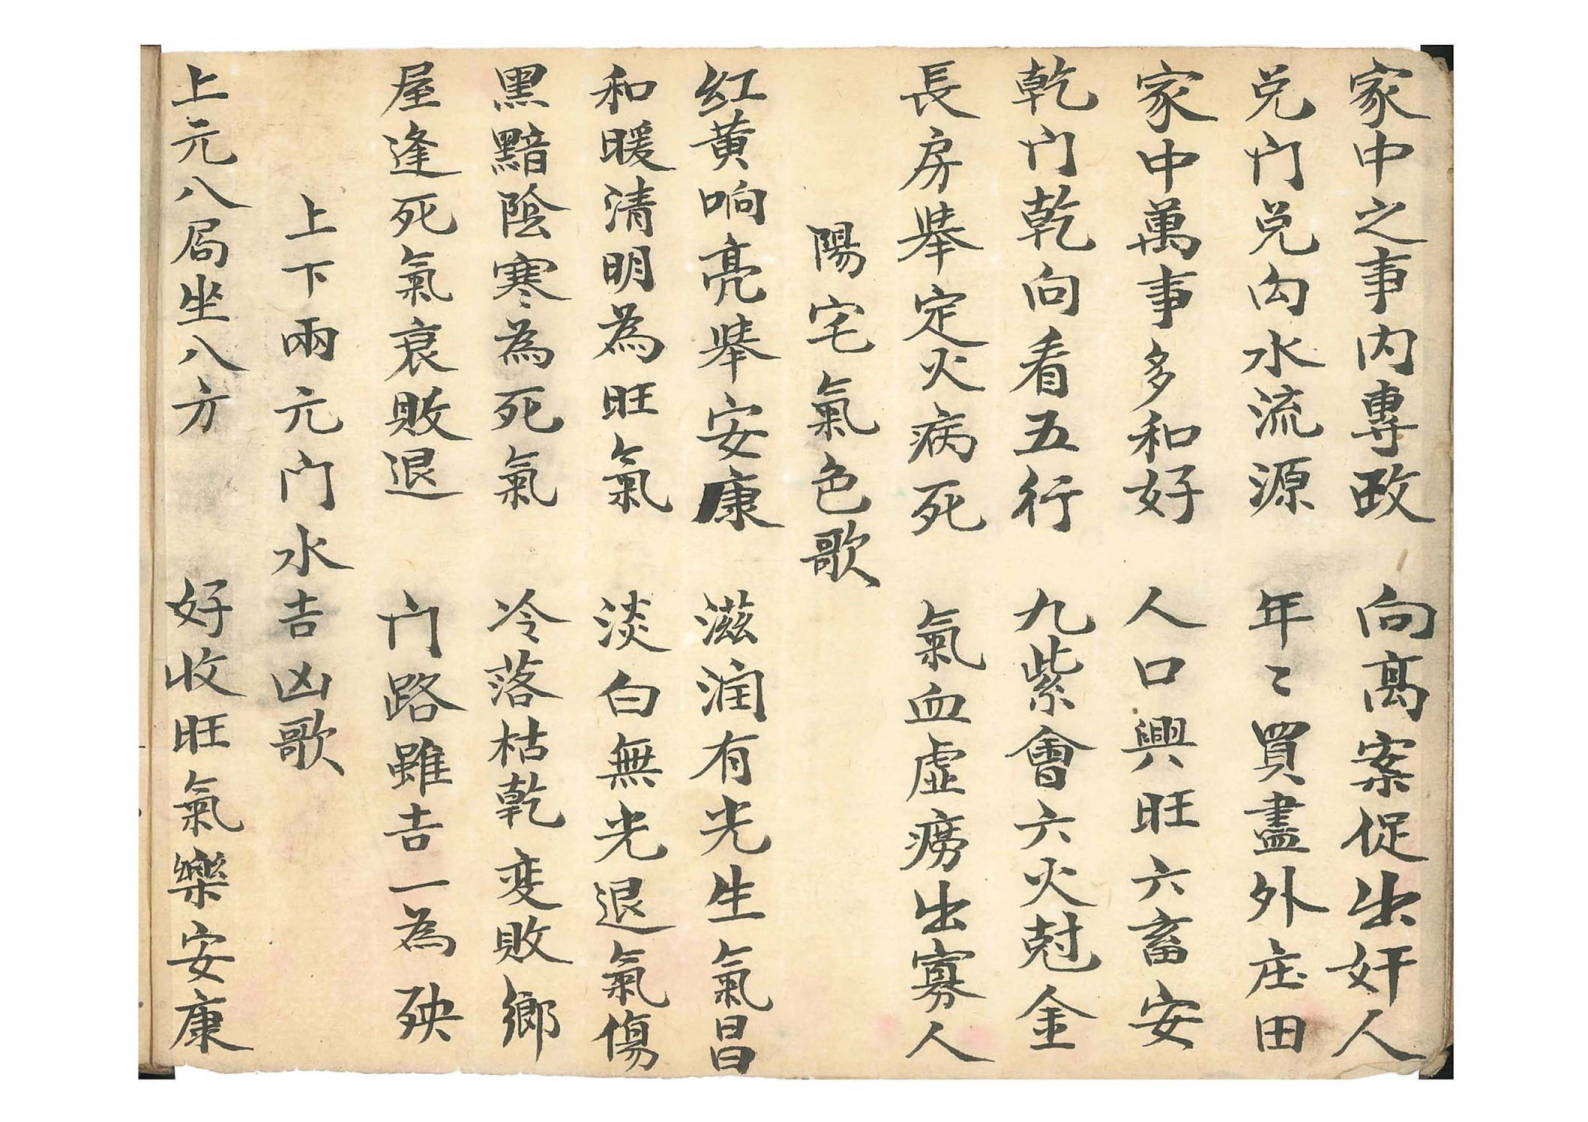 家中之事内專政　向高案促出奸人
兑门兑向水流源　年〻買盡外庄田
家中萬事多和好　人口興旺六畜安
乾门乾向看五行　九紫會六火尅金
長房犖定火病死　氣血虛癆出寡人
陽宅氣色歌
红黄响亮犖安康　滋润有光生氣昌
和暖清明為旺氣　淡白無光退氣傷
黑黯陰寒為死氣　冷落枯乾变敗鄉
屋逢死氣衰敗退　门路雖吉一為殃
上下兩元门水吉凶歌
上元八局坐八方　好收旺氣樂安康